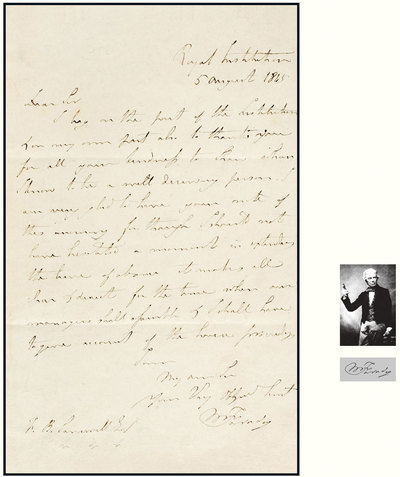 Royal Institution
5 August 1845
Dear Sir
I beg on the part of the Institution
& on my own part also to thank you
for all your kindness to
I know to be a well deserving person. I
am very glad to have your note of
this for though I should not
have hesitated a moment in extending
the leave of absence it makes all
clear & direct for the time when our
managers shall assemble & I shall have
to give account of the
I am
My dear Sir
Your Very Obliged Servt
M Faraday
M Faraday